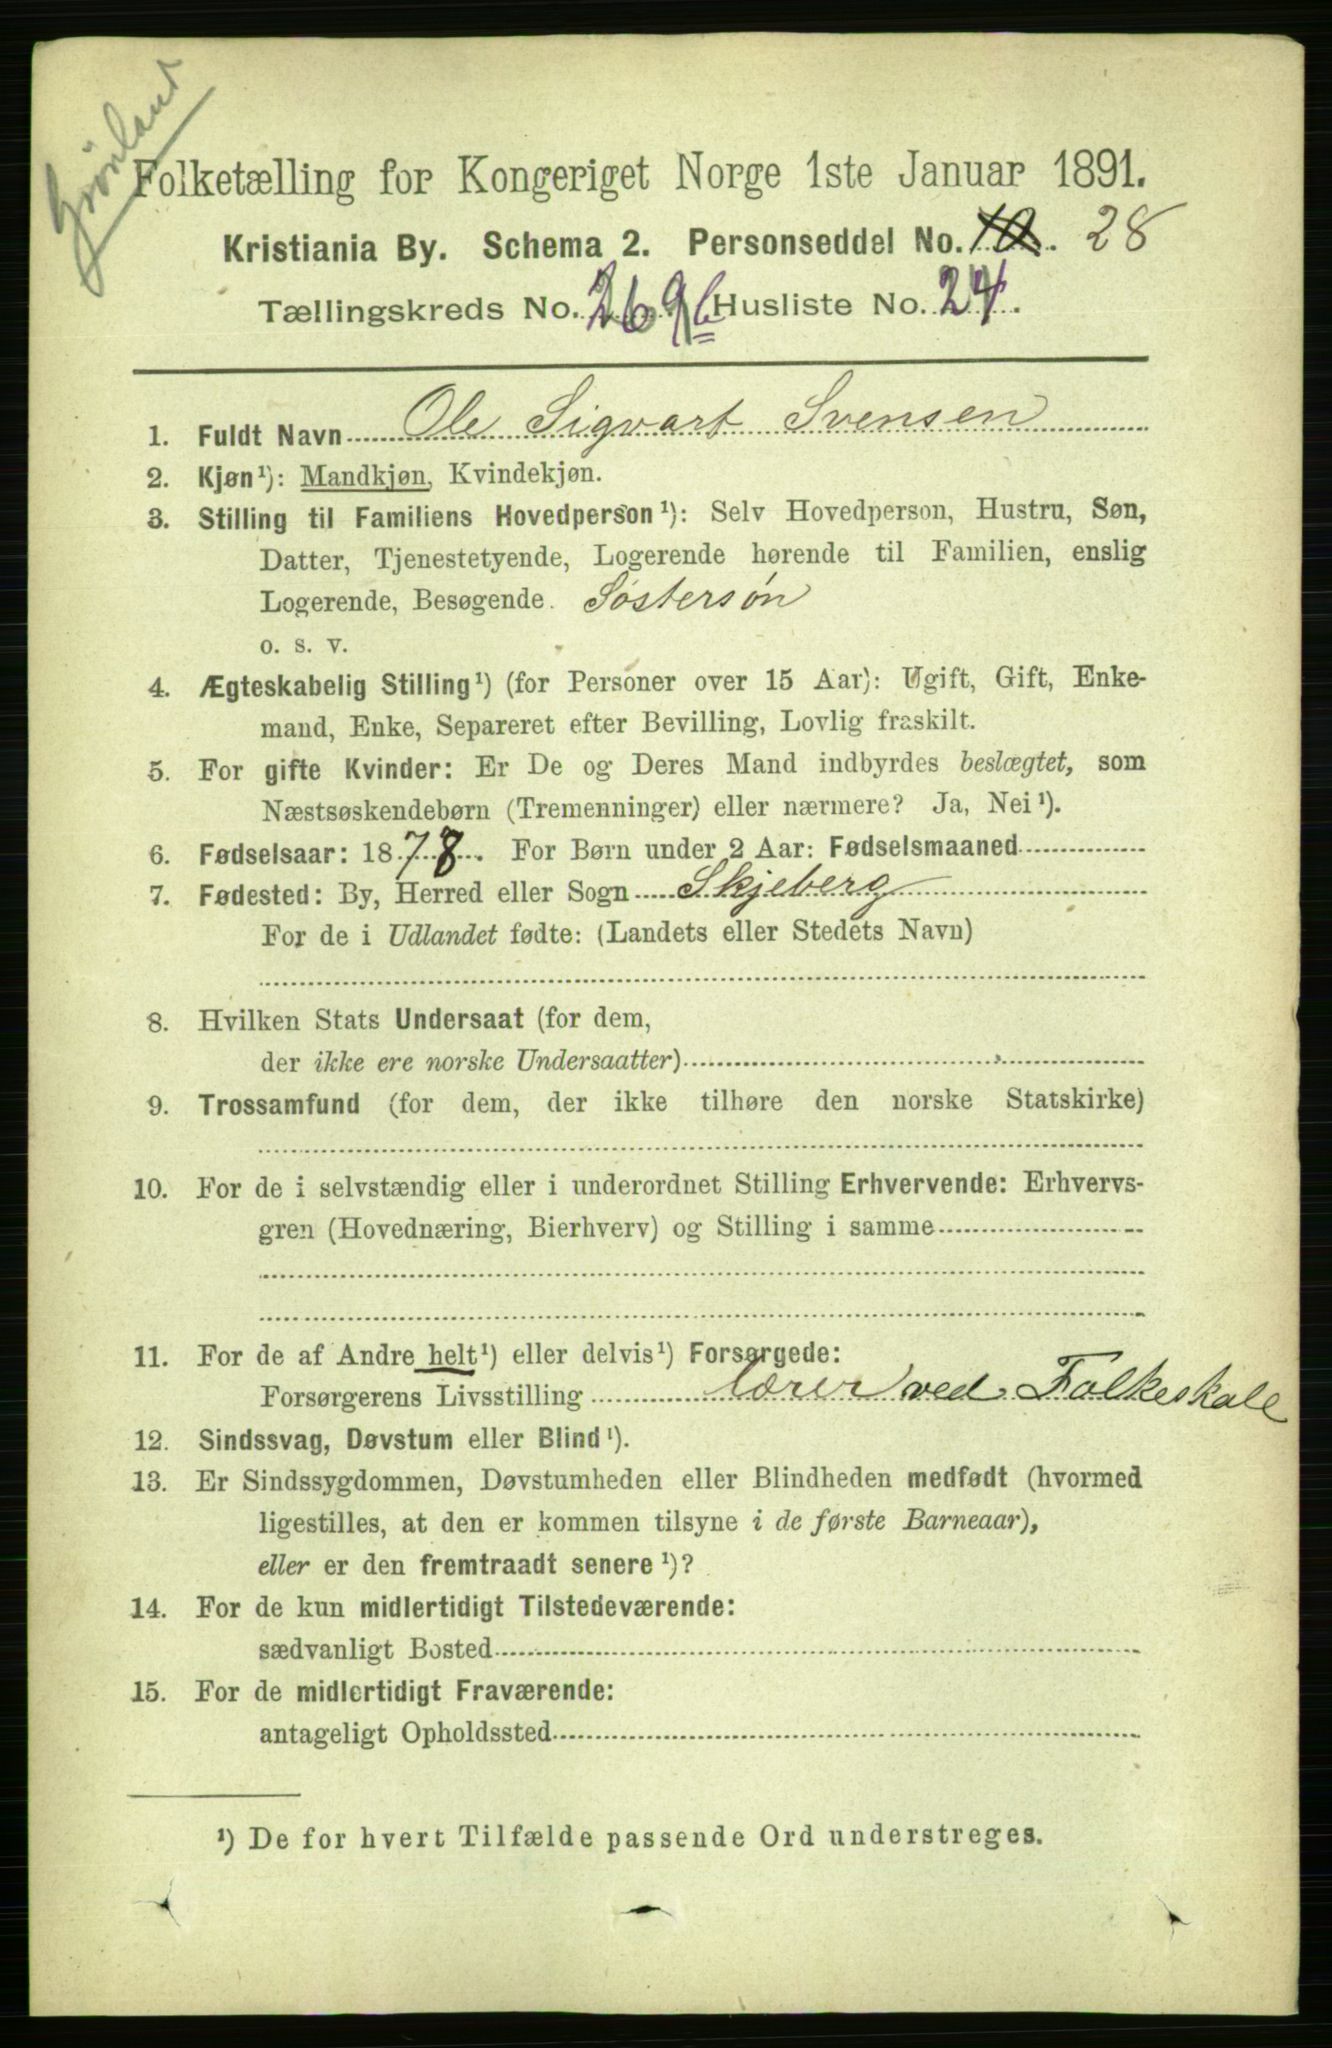 Grönland
Folketælling for Kongeriget Norge 1ste Januar 1891.
Kristiania By. Schema 2. Personseddel No. 10. 28
Tællingskreds No. 269b Husliste No. 24.
1. Fuldt Navn Ole Sigvart Svensen
2. Kjøn¹): Mandkjøn, Kvindekjøn.
3. Stilling til Familiens Hovedperson¹): Selv Hovedperson, Hustru, Søn,
Datter, Tjenestetyende, Logerende hørende til Familien, enslig
Logerende, Besøgende. Søstersøn
o. s. v.
4. Ægteskabelig Stilling¹) (for Personer over 15 Aar): Ugift, Gift, Enke-
mand, Enke, Separeret efter Bevilling, Lovlig fraskilt.
5. For gifte Kvinder: Er De og Deres Mand indbyrdes beslægtet, som
Næstsøskendebørn (Tremenninger) eller nærmere? Ja, Nei¹).
6. Fødselsaar: 1878. For Børn under 2 Aar: Fødselsmaaned
7. Fødested: By, Herred eller Sogn Skjeberg
For de i Udlandet fødte: (Landets eller Stedets Navn)
8. Hvilken Stats Undersaat (for dem,
der ikke ere norske Undersaatter)
9. Trossamfund (for dem, der ikke tilhøre den norske Statskirke)
10. For de i selvstændig eller i underordnet Stilling Erhvervende: Erhvervs-
gren (Hovednæring, Bierhverv) og Stilling i samme
11. For de af Andre helt¹) eller delvis¹) Forsørgede:
Forsørgerens Livsstilling lærer ved Folkeskole
12. Sindssvag, Døvstum eller Blind¹).
13. Er Sindssygdommen, Døvstumheden eller Blindheden medfødt (hvormed
ligestilles, at den er kommen tilsyne i de første Barneaar),
eller er den fremtraadt senere¹)?
14. For de kun midlertidigt Tilstedeværende:
sædvanligt Bosted
15. For de midlertidigt Fraværende:
antageligt Opholdssted
¹) De for hvert Tilfælde passende Ord understreges.